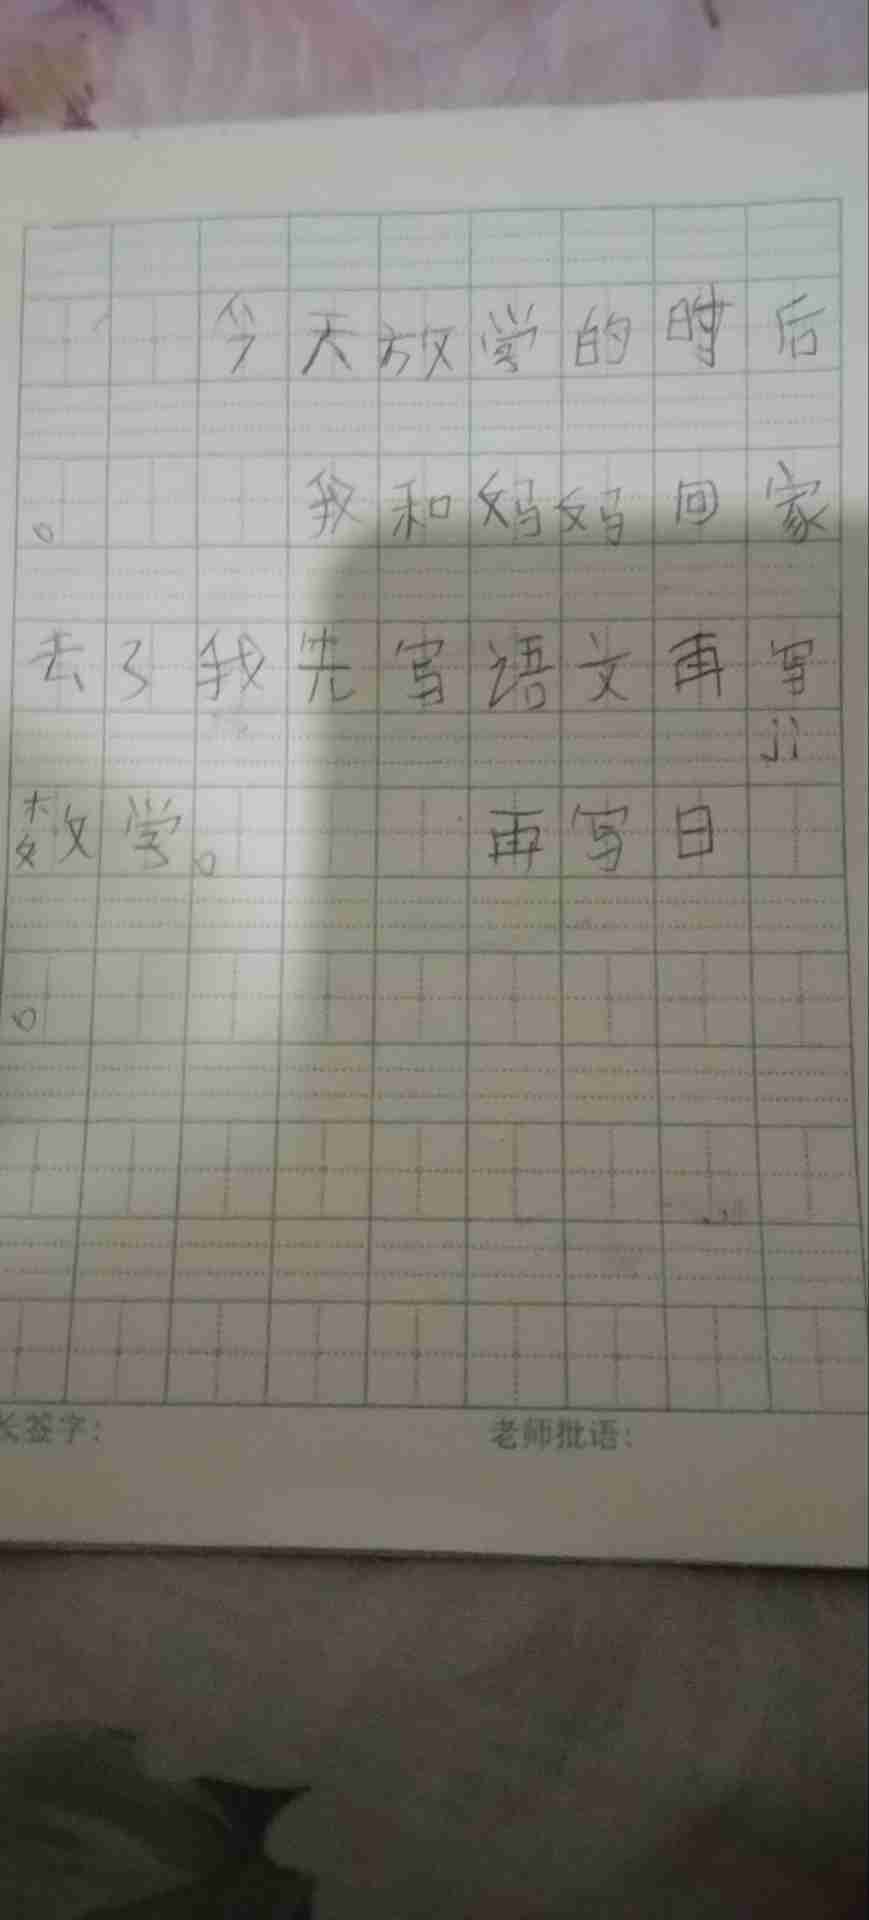 今天放学的时后
。我和妈妈回家
去了我先写语文再写
jì
数学。再写日
。
长签字：
老师批语：